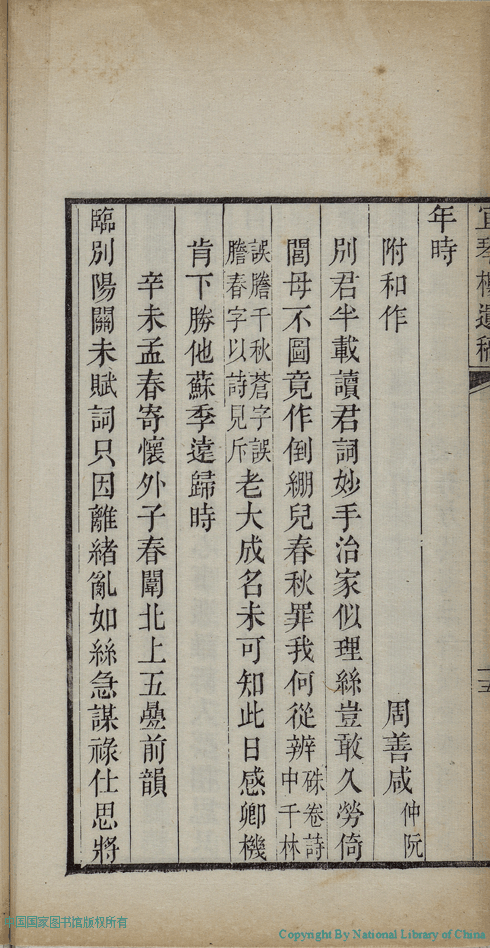 宜琴樓遺稿
十五
年時
附和作
周善咸仲阮
別君半載讀君詞妙手治家似理絲豈敢久勞倚
閭母不圖竟作倒繃兒春秋罪我何從辨硃卷詩中千林
誤膽千秋蒼字誤膽春字以詩見斥老大成名未可知此日感卿機
肯下勝他蘇季遠歸時
辛未孟春寄懷外子春闈北上五疊前韻
臨別陽關未賦詞只因離緒亂如絲急謀祿仕思將
中国国家图书馆版权所有
Copyright By National Library of China